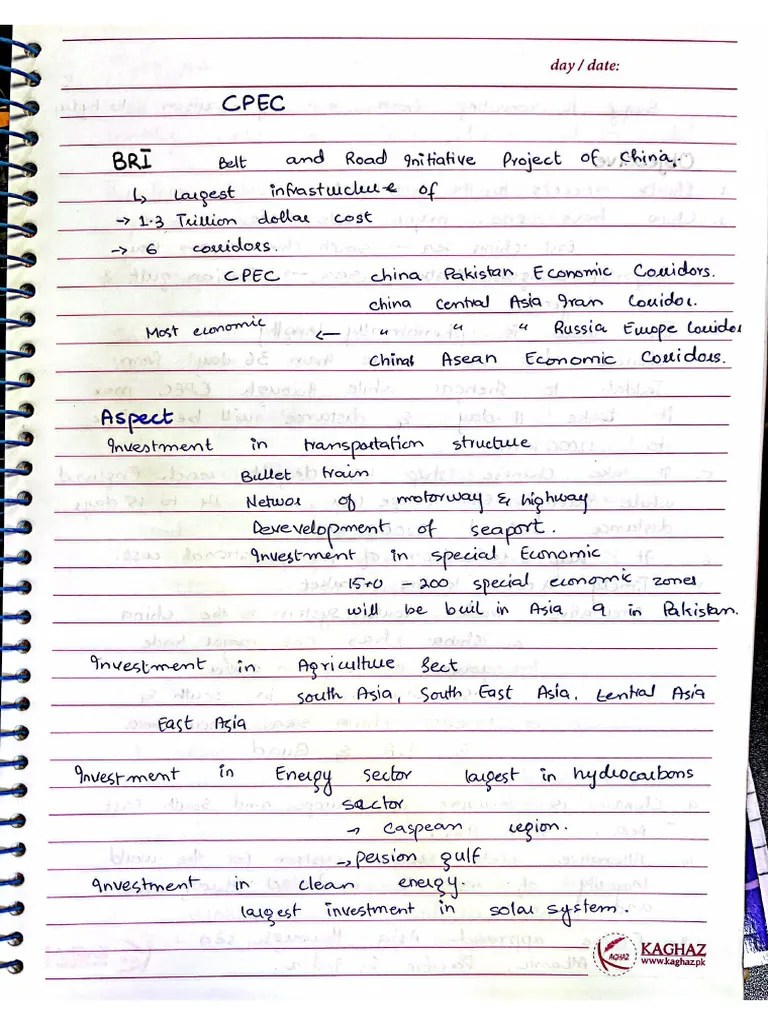 day / date:
CPEC
BRI Belt and Road Initiative Project of China.
↳ largest infrastuchure of
→ 1.3 Trillion dollar cost
→ 6 corridors.
CPEC china Pakistan Economic Corridors.
china Central Asia Iran Corridor.
Most economic ← " " " Russia Europe Corridor
China Asean Economic Corridors.
Aspect
Investment in transportation structure
Bullet train
Networ of motorway & highway
Derevelopment of seaport.
Investment in special Economic
150 - 200 special economic zones
will be buil in Asia 9 in Pakistan.
Investment in Agriculture Sect
South Asia, South East Asia, Central Asia
East Asia
Investment in Energy sector largest in hydrocarbons
sector
→ Caspean region.
→ persion gulf
Investment in clean energy.
largest investment in solar system.
KAGHAZ
www.kaghaz.pk